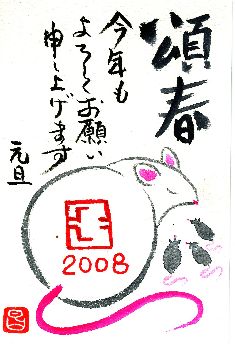 頌春
今年も
よろしくお願い
申し上げます
元旦
2008